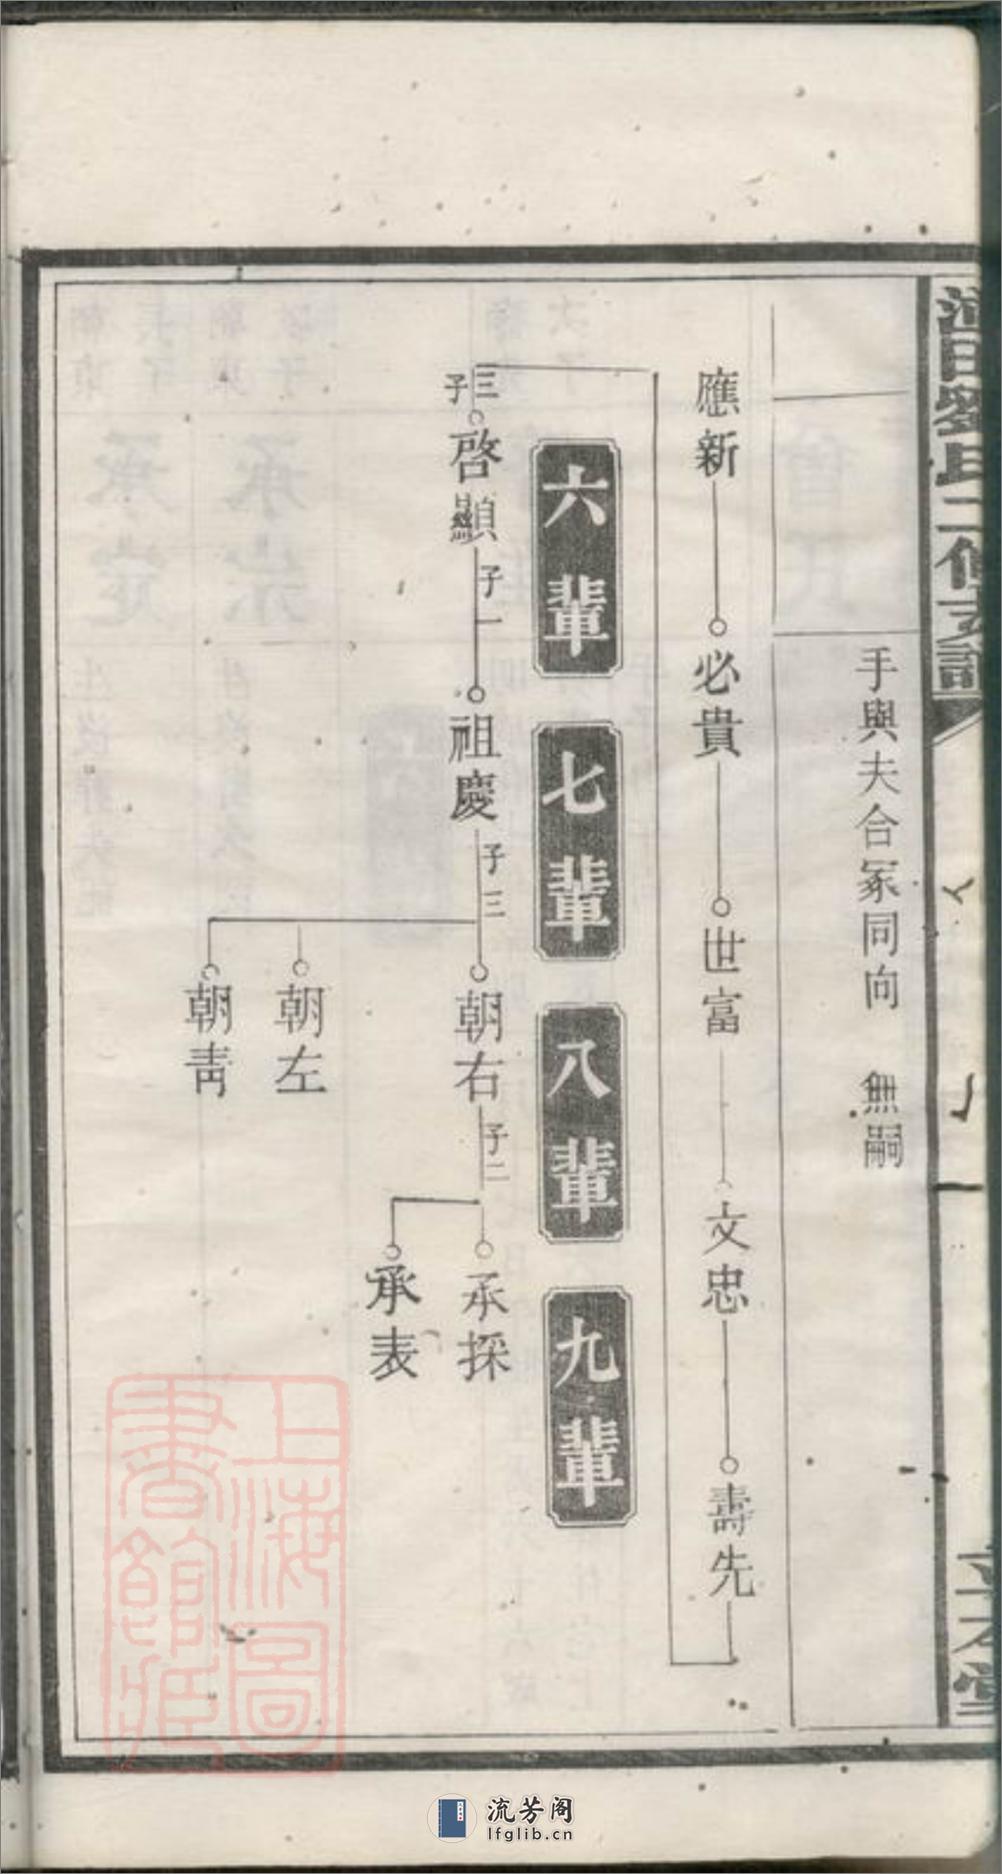 劉氏二修支譜
手與夫合冢同向 無嗣
應新
必貴
世富
文忠
壽先
六輩
七輩
八輩
九輩
三子
啓顯
子一
祖慶
子三
朝右
子二
承採
承表
朝左
朝靑
上海圖
書館藏
流芳阁
lfglib.cn